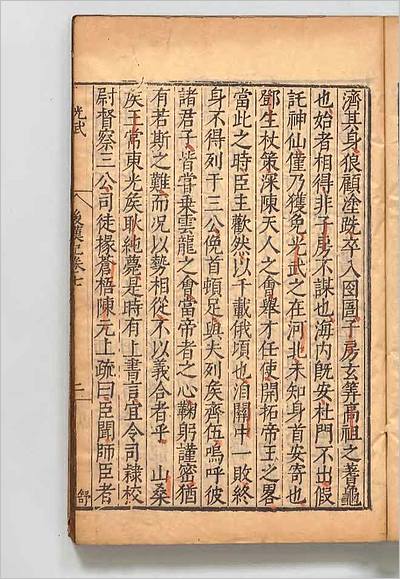 濟其身狼顧塗跣卒入囹圄子房玄筭高祖之蓍龜
也始者相得非子房不謀也海內旣安杜門不出假
託神仙僅乃獲免光武之在河北未知身首安寄也
鄧生杖策深陳天人之會舉才任使開拓帝王之畧
當此之時臣主歡然以千載俄頃也洎關中一敗終
身不得列于三公俛首頓足與夫列矦齊伍嗚呼彼
諸君子皆嘗乗雲龍之會當帝者之心鞠躬謹密猶
有若斯之難而况以勢相從不以義合者乎 山桑
矦王常東光矦耿純薨是時有上書言宜令司隸校
尉督察三公司徒椽蒼梧陳元上疏曰臣聞師臣者
光武
後漢 卷七
二
舒